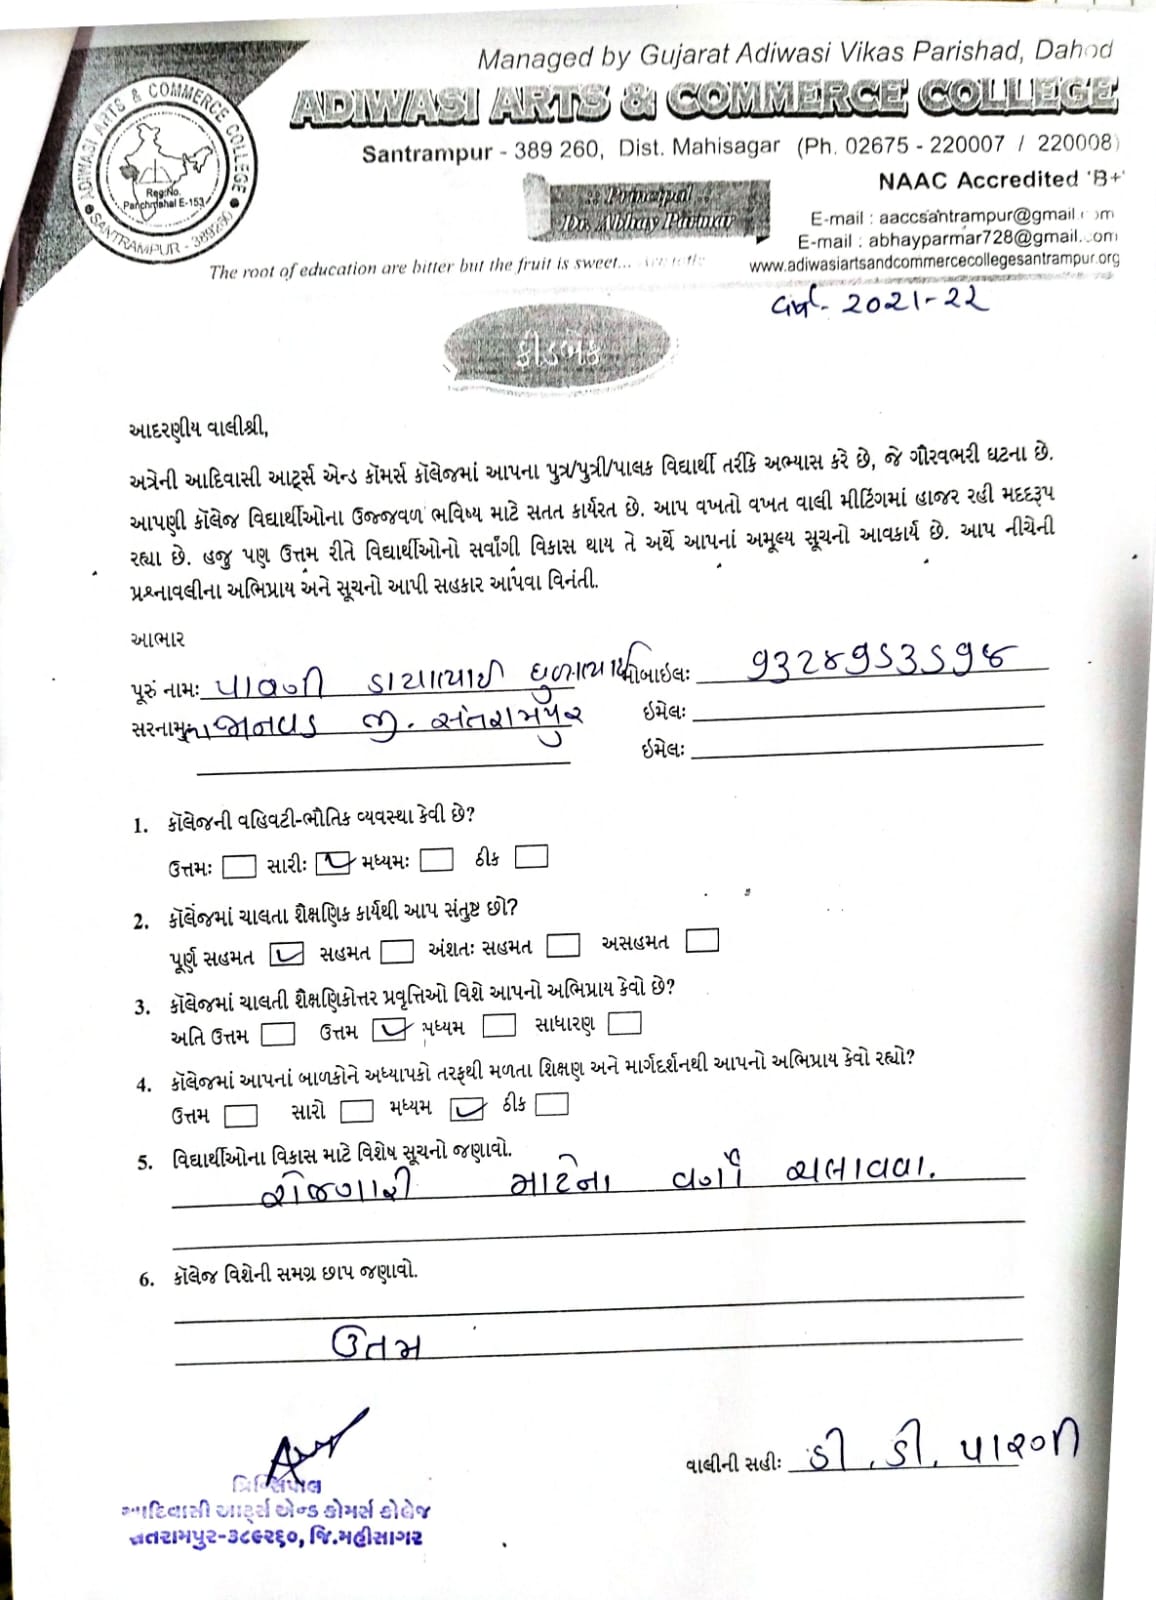 Managed by Gujarat Adiwasi Vikas Parishad, Dahod
ADIWASI ARTS & COMMERCE COLLEGE
ADIWASI ARTS & COMMERCE COLLEGE
Reg.No.
Panchmahal E-153
SANTRAMPUR - 389260
Santrampur - 389 260, Dist. Mahisagar (Ph. 02675 - 220007 / 220008)
NAAC Accredited 'B+'
:: Principal ::
Dr. Abhay Parmar
E-mail : aaccsantrampur@gmail.com
E-mail : abhayparmar728@gmail.com
The root of education are bitter but the fruit is sweet...
www.adiwasiartsandcommercecollegesantrampur.org
વર્ષ- 2021-22
ફીડબેક
આદરણીય વાલીશ્રી,
અત્રેની આદિવાસી આર્ટ્સ એન્ડ કૉમર્સ કૉલેજમાં આપના પુત્ર/પુત્રી/પાલક વિદ્યાર્થી તરીકે અભ્યાસ કરે છે, જે ગૌરવભરી ઘટના છે.
આપણી કૉલેજ વિદ્યાર્થીઓના ઉજ્જવળ ભવિષ્ય માટે સતત કાર્યરત છે. આપ વખતો વખત વાલી મીટિંગમાં હાજર રહી મદદરૂપ
રહ્યા છે. હજુ પણ ઉત્તમ રીતે વિદ્યાર્થીઓનો સર્વાંગી વિકાસ થાય તે અર્થે આપનાં અમૂલ્ય સૂચનો આવકાર્ય છે. આપ નીચેની
પ્રશ્નાવલીના અભિપ્રાય અને સૂચનો આપી સહકાર આપવા વિનંતી.
આભાર
પૂરું નામઃ ડાયાભાઈ મોબાઇલઃ ૧૩૨૪૧૬૩૬૧૪
સરનામું જી. સંતરામપુર ઇમેલઃ
ઇમેલઃ
1. કૉલેજની વહિવટી-ભૌતિક વ્યવસ્થા કેવી છે?
ઉત્તમઃ સારીઃ મધ્યમઃ ઠીક
2. કૉલેજમાં ચાલતા શૈક્ષણિક કાર્યથી આપ સંતુષ્ટ છો?
પૂર્ણ સહમત સહમત અંશતઃ સહમત અસહમત
3. કૉલેજમાં ચાલતી શૈક્ષણિકોત્તર પ્રવૃત્તિઓ વિશે આપનો અભિપ્રાય કેવો છે?
અતિ ઉત્તમ ઉત્તમ મધ્યમ સાધારણ
4. કૉલેજમાં આપનાં બાળકોને અધ્યાપકો તરફથી મળતા શિક્ષણ અને માર્ગદર્શનથી આપનો અભિપ્રાય કેવો રહ્યો?
ઉત્તમ સારો મધ્યમ ઠીક
5. વિદ્યાર્થીઓના વિકાસ માટે વિશેષ સૂચનો જણાવો.
રોજગારી માટેના વર્ગો ચલાવવા.
6. કૉલેજ વિશેની સમગ્ર છાપ જણાવો.
ઉતમ
વાલીની સહીઃ ડી. ડી. પારગી
પ્રિન્સિપાલ
આદિવાસી આર્ટ્સ એન્ડ કોમર્સ કોલેજ
સંતરામપુર-૩૮૯૨૬૦, જિ.મહીસાગર